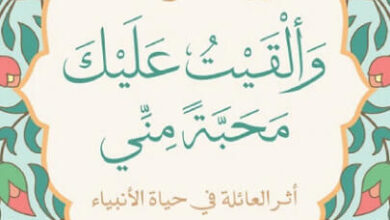 وَأَلْقَيْتُ عَلَيْكَ
مَحَبَّةً مِنِّي
أثر العائلة في حياة الأنبياء